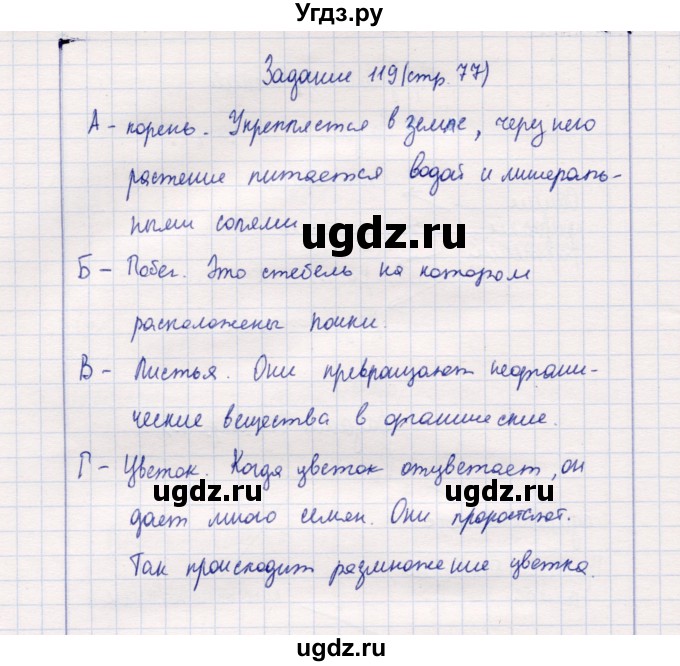 Угдз.ру
Задание 119 (стр. 77)
А - корень. Укрепляется в земле, через него
растение питается водой и минераль-
ными солями
ugdz.ru
Б - Побег. Это стебель на котором
расположены почки.
В - Листья. Они превращают неоргани-
ческие вещества в органические.
Г - Цветок. Когда цветок отцветает, он
ugdz.ru ugdz.ru
дает много семян. Они прорастают.
Так происходит размножение цветка.
ugdz.ru